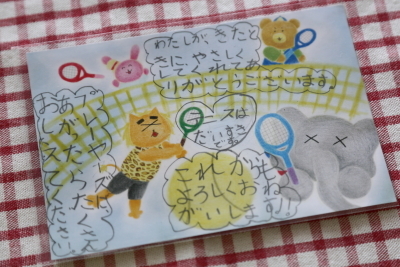 わたしが、きたと
きに やさしく
してくれてあ
りがとうございます。
テニスは
だいすき
あがったらたくさん
おしえてください。
これからも
よろしくおね
がいします!!